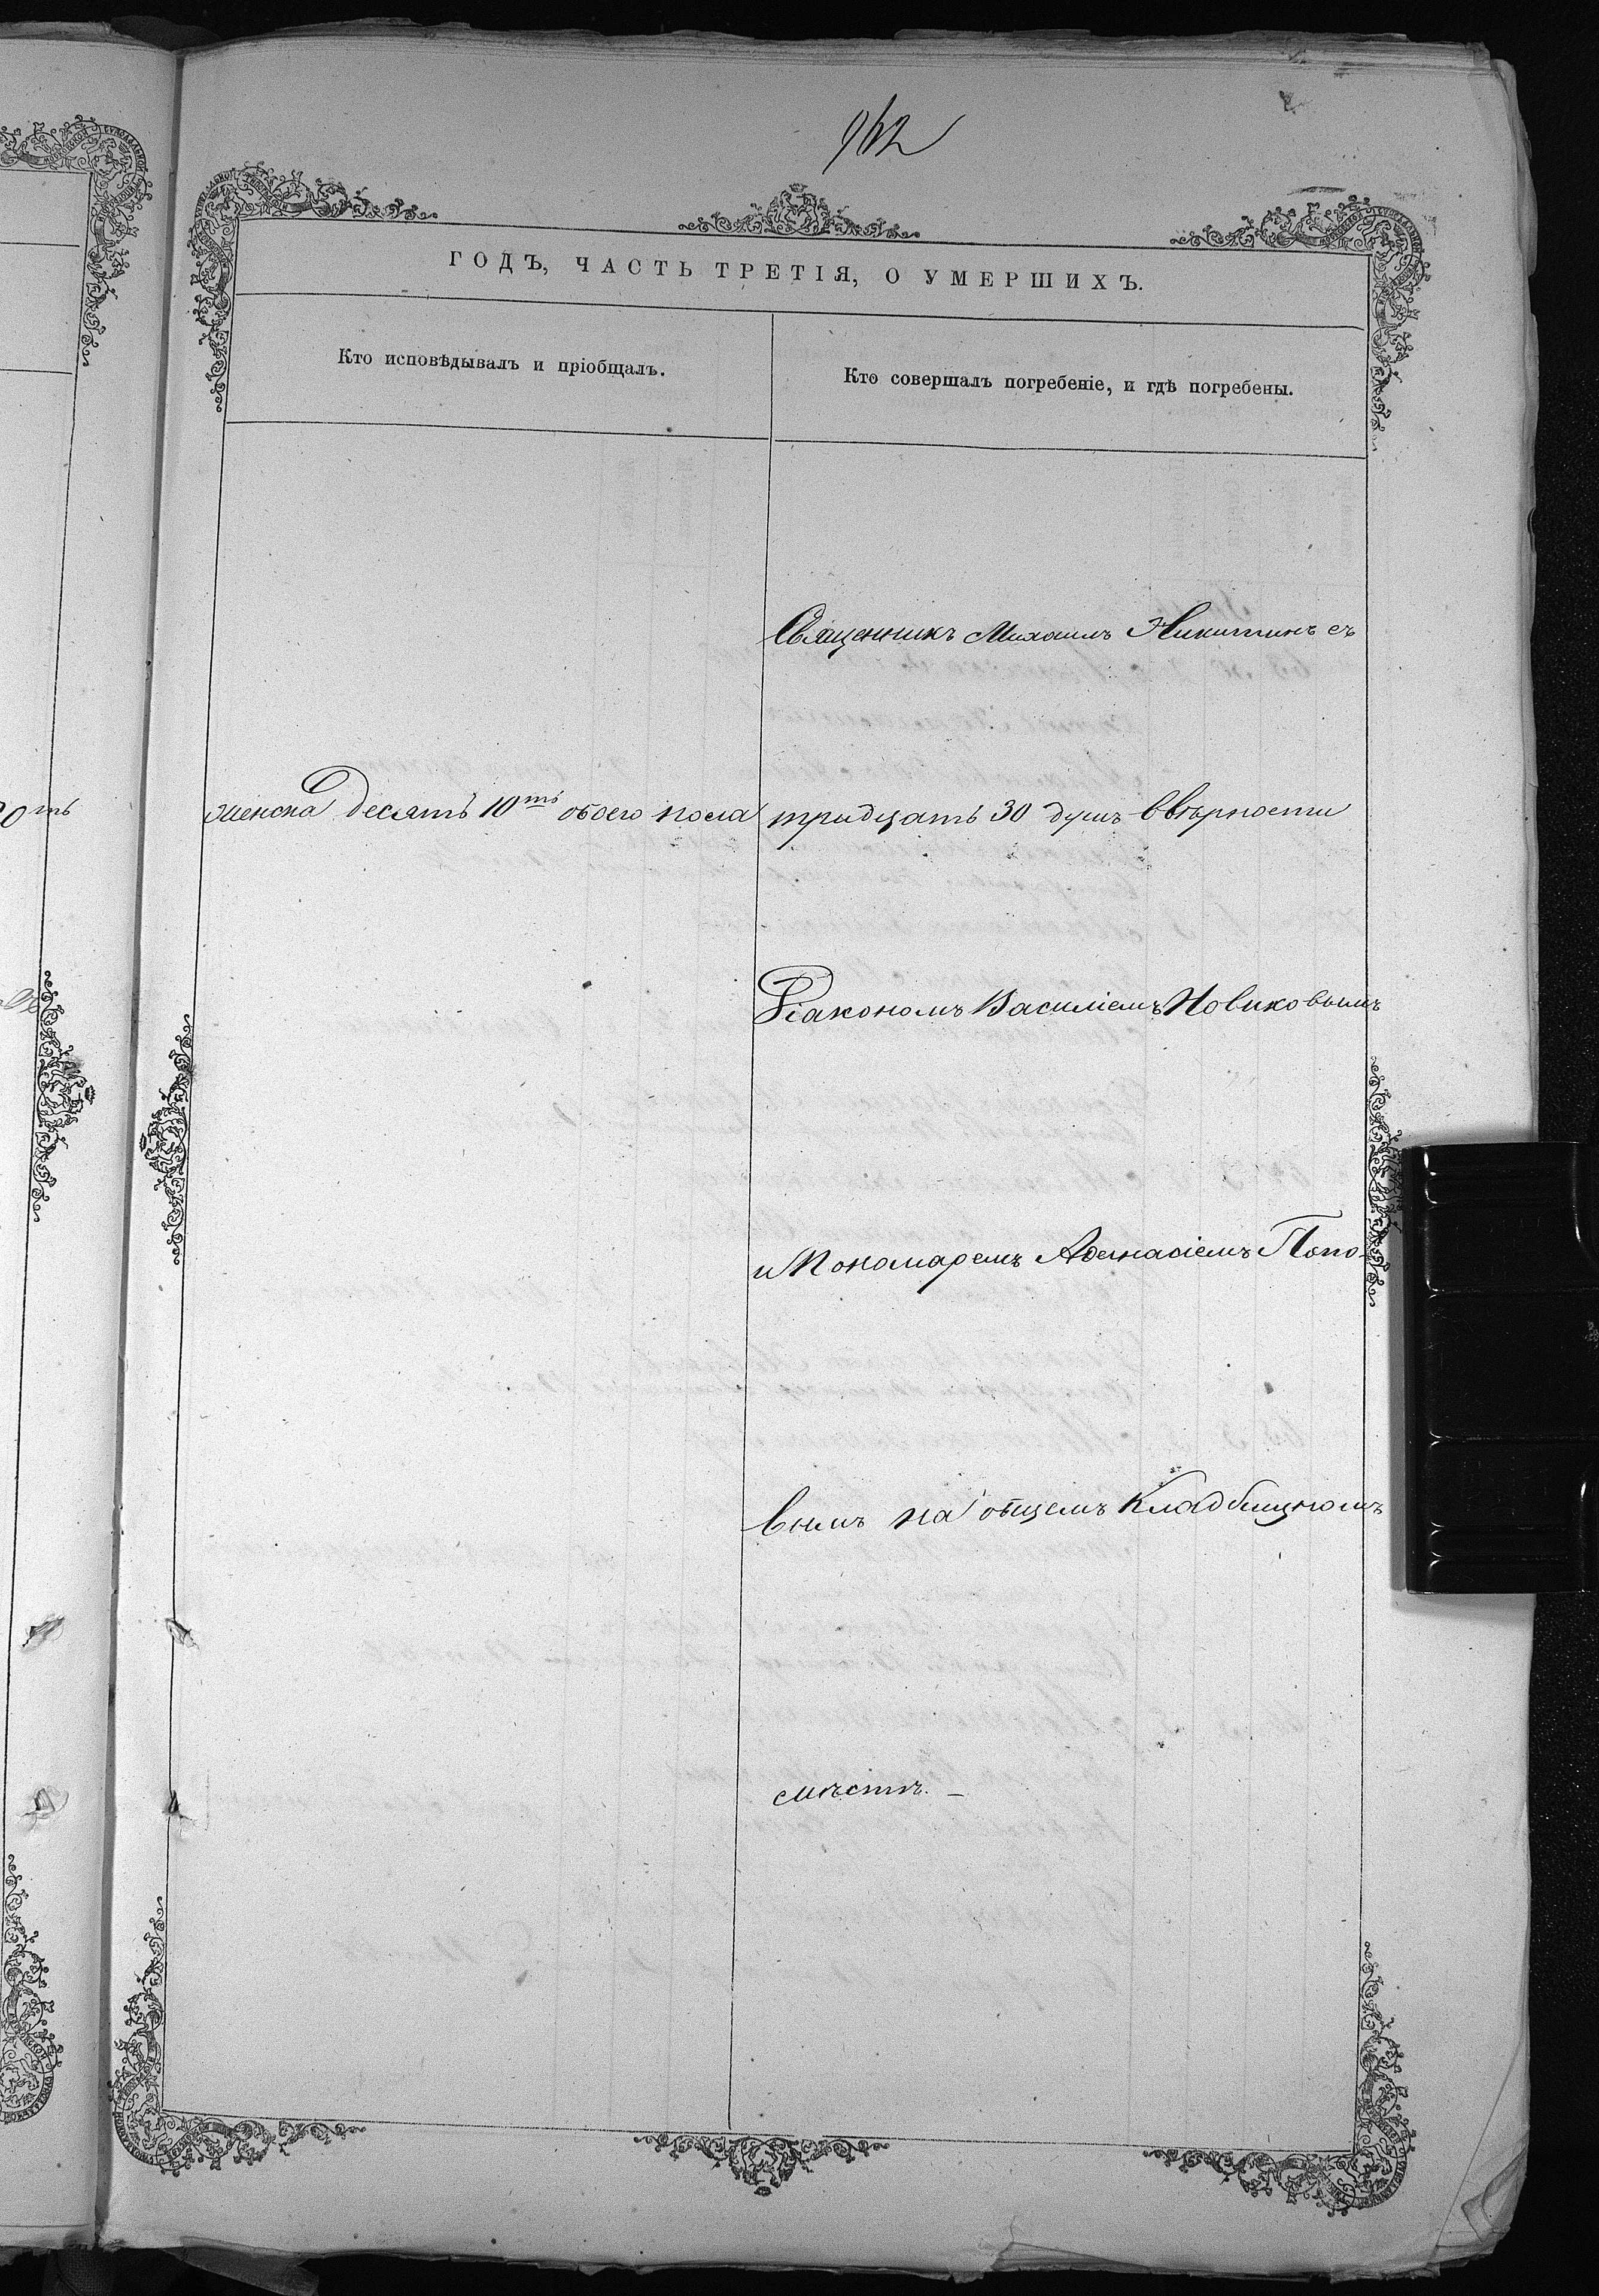 962
ГОДЪ, ЧАСТЬ ТРЕТІЯ, О УМЕРШИХЪ.
Кто исповѣдывалъ и пріобщалъ.
Кто совершалъ погребеніе, и гдѣ погребены.
Священникъ Михаилъ Никитинъ съ
женска десять 10ть обоего пола тридцать 30 душъ Ввѣрности
Діакономъ Василіемъ Новиковымъ
и Пономаремъ Аѳанасіемъ Попо-
вымъ на общемъ Кладбищномъ
смѣстѣ. –